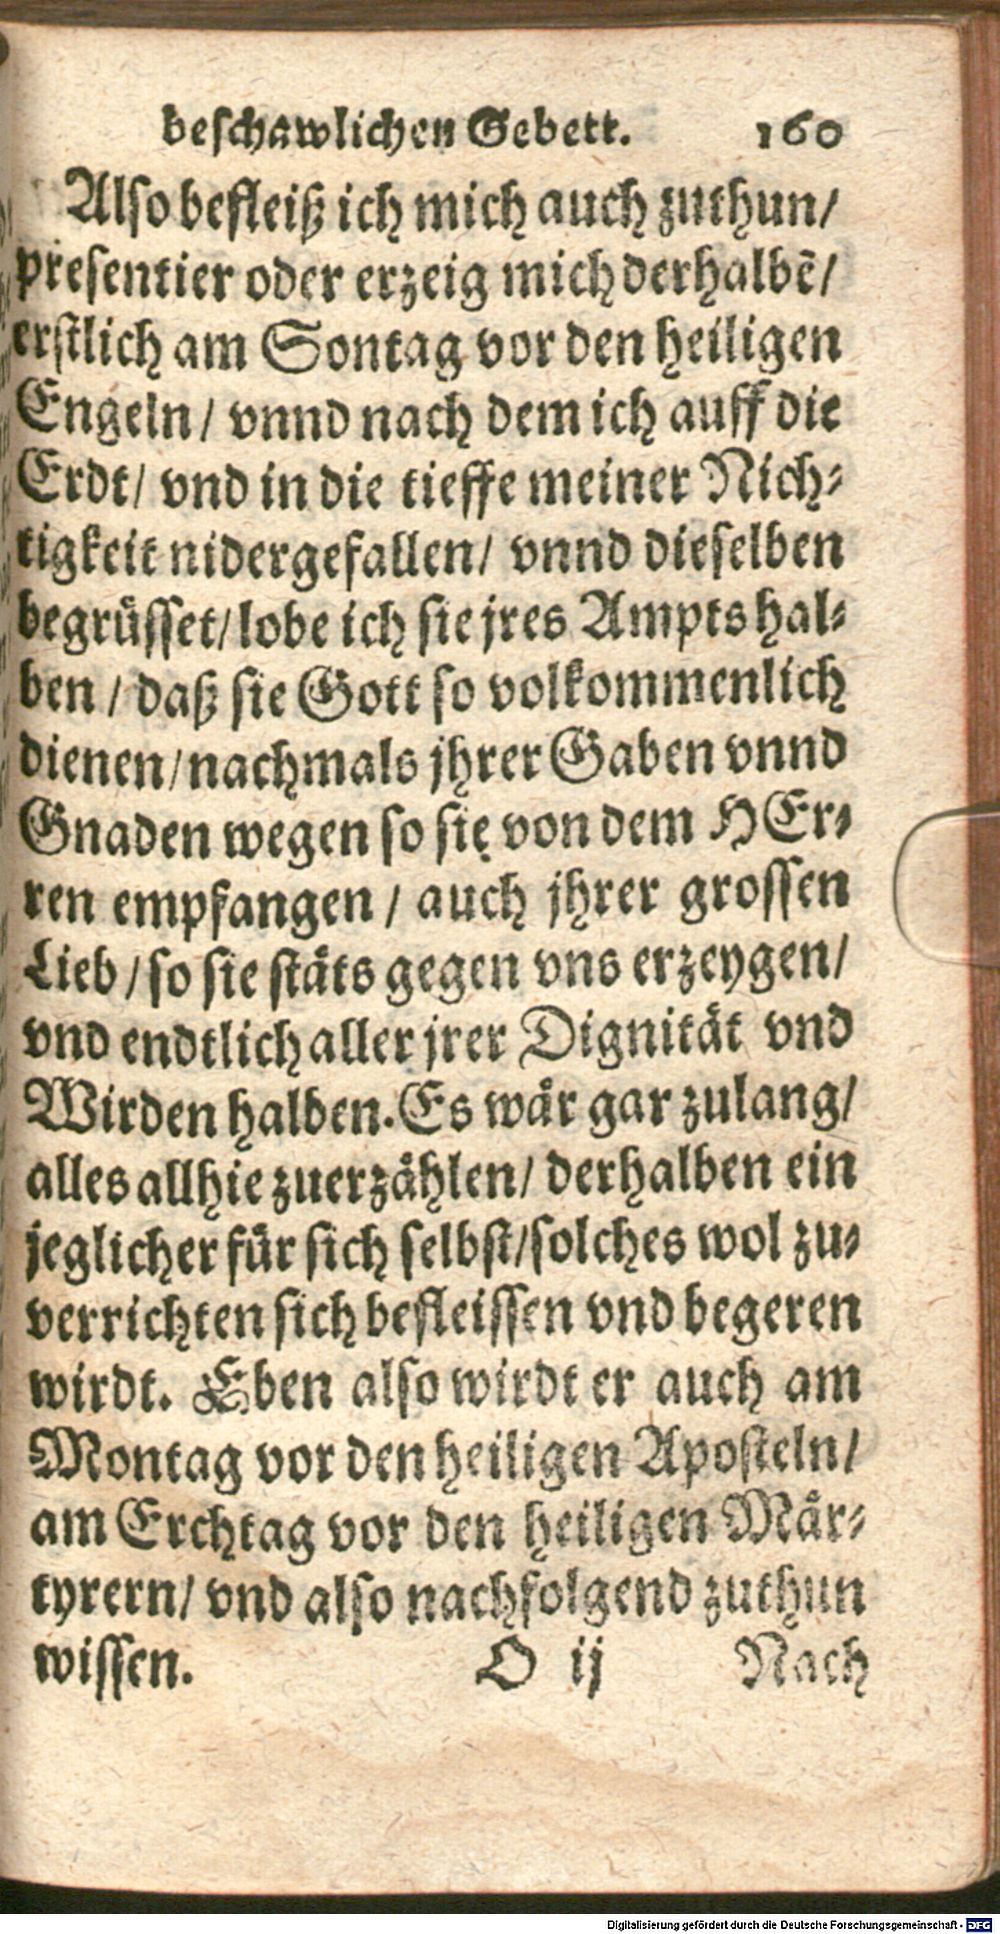 beschawlichen Gebett. 160
Also befleiß ich mich auch zuthun/
presentier oder erzeig mich derhalbē/
erstlich am Sontag vor den heiligen
Engeln/ vnnd nach dem ich auff die
Erdt/ vnd in die tieffe meiner Nich⸗
tigkeit nidergefallen/ vnnd dieselben
begrüsset/ lobe ich sie jres Ampts hal⸗
ben/ daß sie Gott so volkommenlich
dienen/ nachmals jhrer Gaben vnnd
Gnaden wegen so sie von dem HEr⸗
ren empfangen/ auch jhrer grossen
Lieb/ so sie stäts gegen vns erzeygen/
vnd endtlich aller jrer Dignität vnd
Wirden halben. Es wär gar zulang/
alles allhie zuerzählen/ derhalben ein
jeglicher für sich selbst/ solches wol zu⸗
verrichten sich befleissen vnd begeren
wirdt. Eben also wirdt er auch am
Montag vor den heiligen Aposteln/
am Erchtag vor den heiligen Mär⸗
tyrern/ vnd also nachfolgend zuthun
wissen. O ij Nach
Digitalisierung gefördert durch die Deutsche Forschungsgemeinschaft - DFG